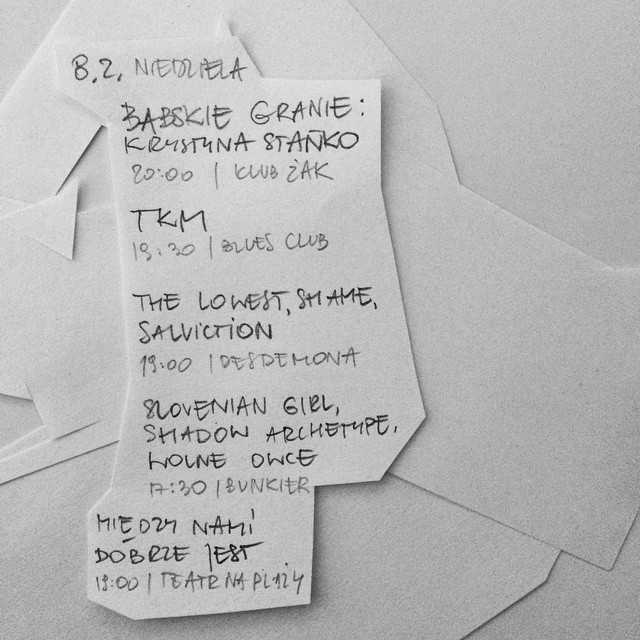 8.2. NIEDZIELA
BABSKIE GRANIE:
KRYSTYNA STAŃKO
20:00 | KLUB ŻAK
TKM
19:30 | BLUES CLUB
THE LOWEST, SHAME,
SALVICTION
19:00 | DESDEMONA
SLOVENIAN GIRL,
SHADOW ARCHETYPE,
WOLNE OWCE
17:30 | BUNKIER
MIĘDZY NAMI
DOBRZE JEST
19:00 | TEATR NA PLAŻY